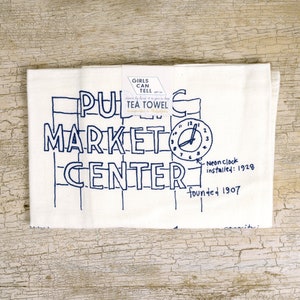 GIRLS
CAN
TELL
TEA TOWEL
PUBLIC
MARKET
CENTER
Neon clock
installed: 1928
founded 1907